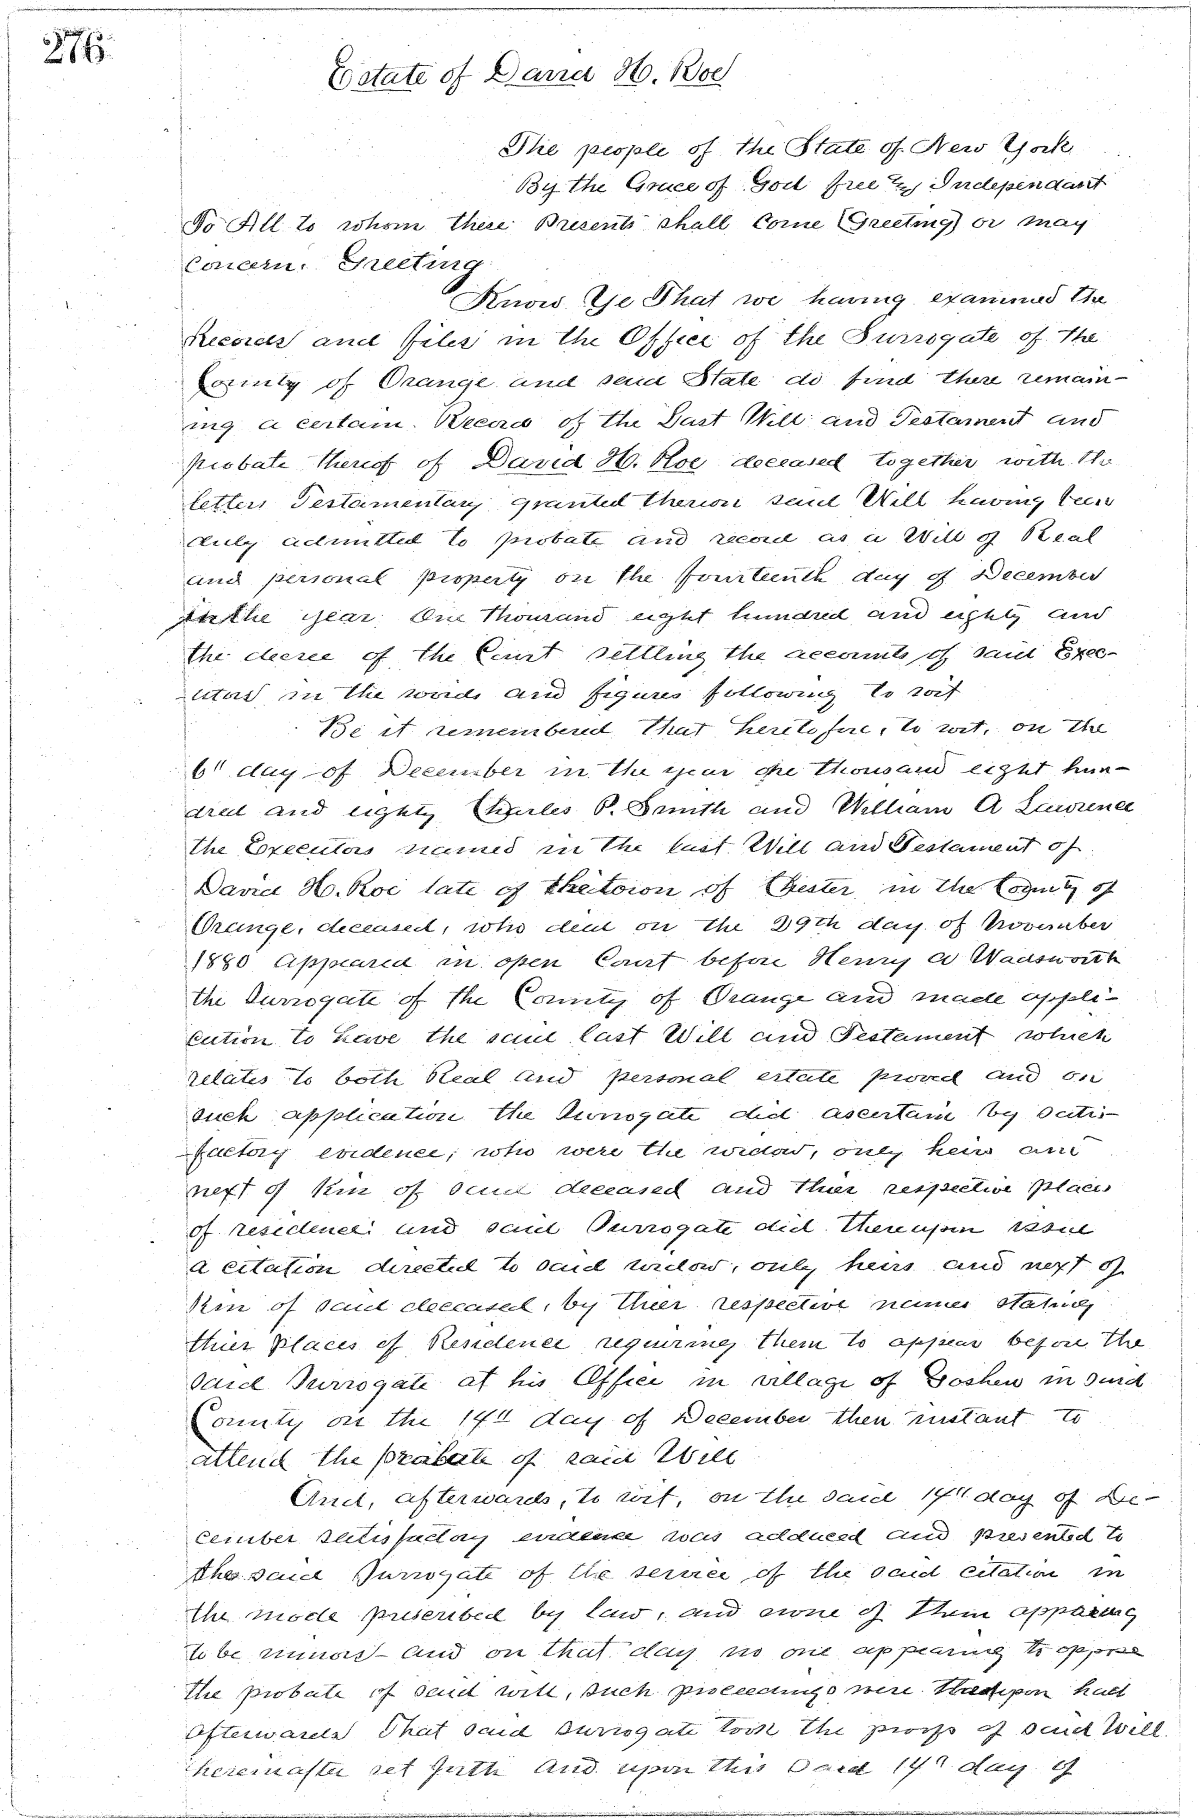 276
Estate of David H. Roe
The people of the State of New York
By the Grace of God free & Independant
To All to whom these Presents shall Come (Greeting) or may
concern. Greeting
Know Ye That we having examined the
Records and files in the Office of the Surrogate of the
County of Orange and said State do find there remain-
ing a certain Record of the Last Will and Testament and
probate thereof of David H. Roe deceased together with the
letters Testamentary granted thereon said Will having been
duly admitted to probate and record as a Will of Real
and personal property on the fourteenth day of December
in the year One thousand eight hundred and eighty and
the decree of the Court settling the accounts of said Exec-
utors in the words and figures following to wit
Be it remembered that heretofore, to wit, on the
6" day of December in the year one thousand eight hun-
dred and eighty Charles P. Smith and William A Lawrence
the Executors named in the last Will and Testament of
David H. Roe late of the town of Chester in the County of
Orange, deceased, who died on the 29th day of November
1880 Appeared in open Court before Henry A Wadsworth
the Surrogate of the County of Orange and made appli-
cation to have the said last Will and Testament which
relates to both Real and personal estate proved and on
such application the Surrogate did ascertain by satis-
factory evidence, who were the widow, only heirs and
next of Kin of said deceased and thier respective places
of residence: and said Surrogate did thereupon issue
a citation directed to said widow, only heirs and next of
Kin of said deceased, by thier respective names stating
thier places of Residence requiring them to appear before the
said Surrogate at his Office in village of Goshen in said
County on the 14" day of December then instant to
attend the probate of said Will
And, afterwards, to wit, on the said 14" day of De-
cember satisfactory evidence was adduced and presented to
the said Surrogate of the service of the said citation in
the mode prescribed by law, and none of them appearing
to be minors - and on that day no one appearing to oppose
the probate of said will, such proceedings were thereupon had
afterwards That said Surrogate took the proofs of said Will
hereinafter set forth And upon this said 14" day of